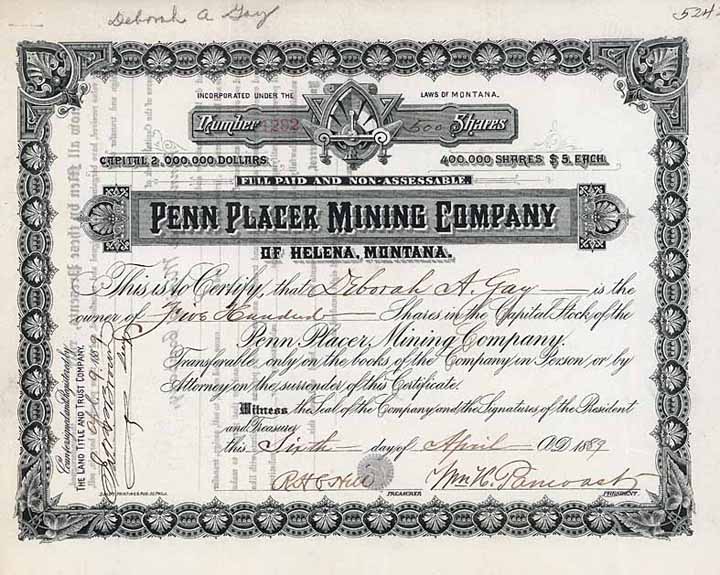 Deborah A Gay
524
INCORPORATED UNDER THE LAWS OF MONTANA.
Number 1282 500 Shares
CAPITAL 2,000,000 DOLLARS. 400,000 SHARES $5. EACH.
FULL PAID AND NON-ASSESSABLE.
PENN PLACER MINING COMPANY
OF HELENA, MONTANA.
This is to Certify, that Deborah A. Gay is the
owner of Five Hundred Shares in the Capital Stock of the
Penn Placer Mining Company.
Transferable only on the books of the Company in Person or by
Attorney on the surrender of this Certificate.
Witness the Seal of the Company and the Signatures of the President
and Treasurer
this Sixth day of April A.D. 1889
R.H.C. Hill Wm H. Pancoast
TREASURER PRESIDENT.
Countersigned and Registered by
THE LAND TITLE AND TRUST COMPANY.